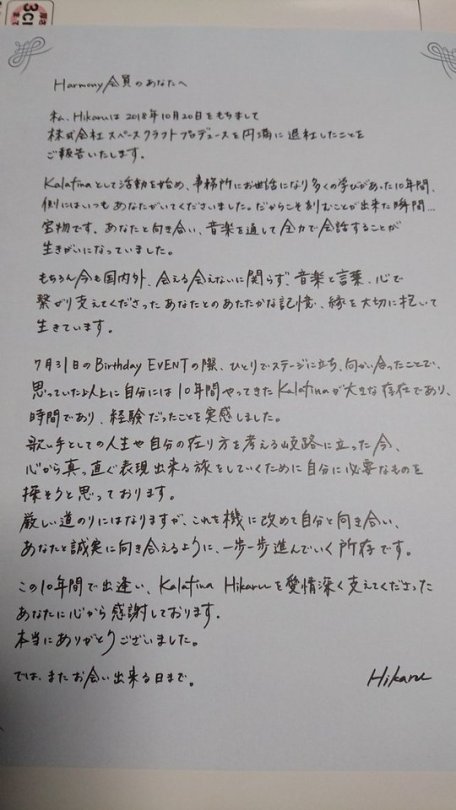 3CD
Harmony会員のあなたへ
私、Hikaruは2018年10月20日をもちまして
株式会社スペースクラフトプロデュースを円満に退社したことを
ご報告いたします。
Kalafinaとして活動を始め、事務所にお世話になり多くの学びがあった10年間、
側にはいつもあなたがいてくださいました。だからこそ刻むことが出来た瞬間…
宝物です。あなたと向き合い、音楽を通して全力で会話することが
生きがいになっていました。
もちろん今も国内外、会える会えないに関らず、音楽と言葉、心で
繋がり支えてくださったあなたとのあたたかな記憶、縁を大切に抱いて
生きています。
7月31日のBirthday EVENTの際、ひとりでステージに立ち、向かい合ったことで、
思っていた以上に自分には10年間やってきたKalafinaが大きな存在であり、
時間であり、経験だったことを実感しました。
歌い手としての人生や自分の在り方を考える岐路に立った今、
心から真っ直ぐ表現出来る旅をしていくために自分に必要なものを
探そうと思っております。
厳しい道のりにはなりますが、これを機に改めて自分と向き合い、
あなたと誠実に向き合えるように、一歩一歩進んでいく所存です。
この10年間で出逢い、Kalafina Hikaruを愛情深く支えてくださった
あなたに心から感謝しております。
本当にありがとうございました。
では、またお会い出来る日まで。
Hikaru